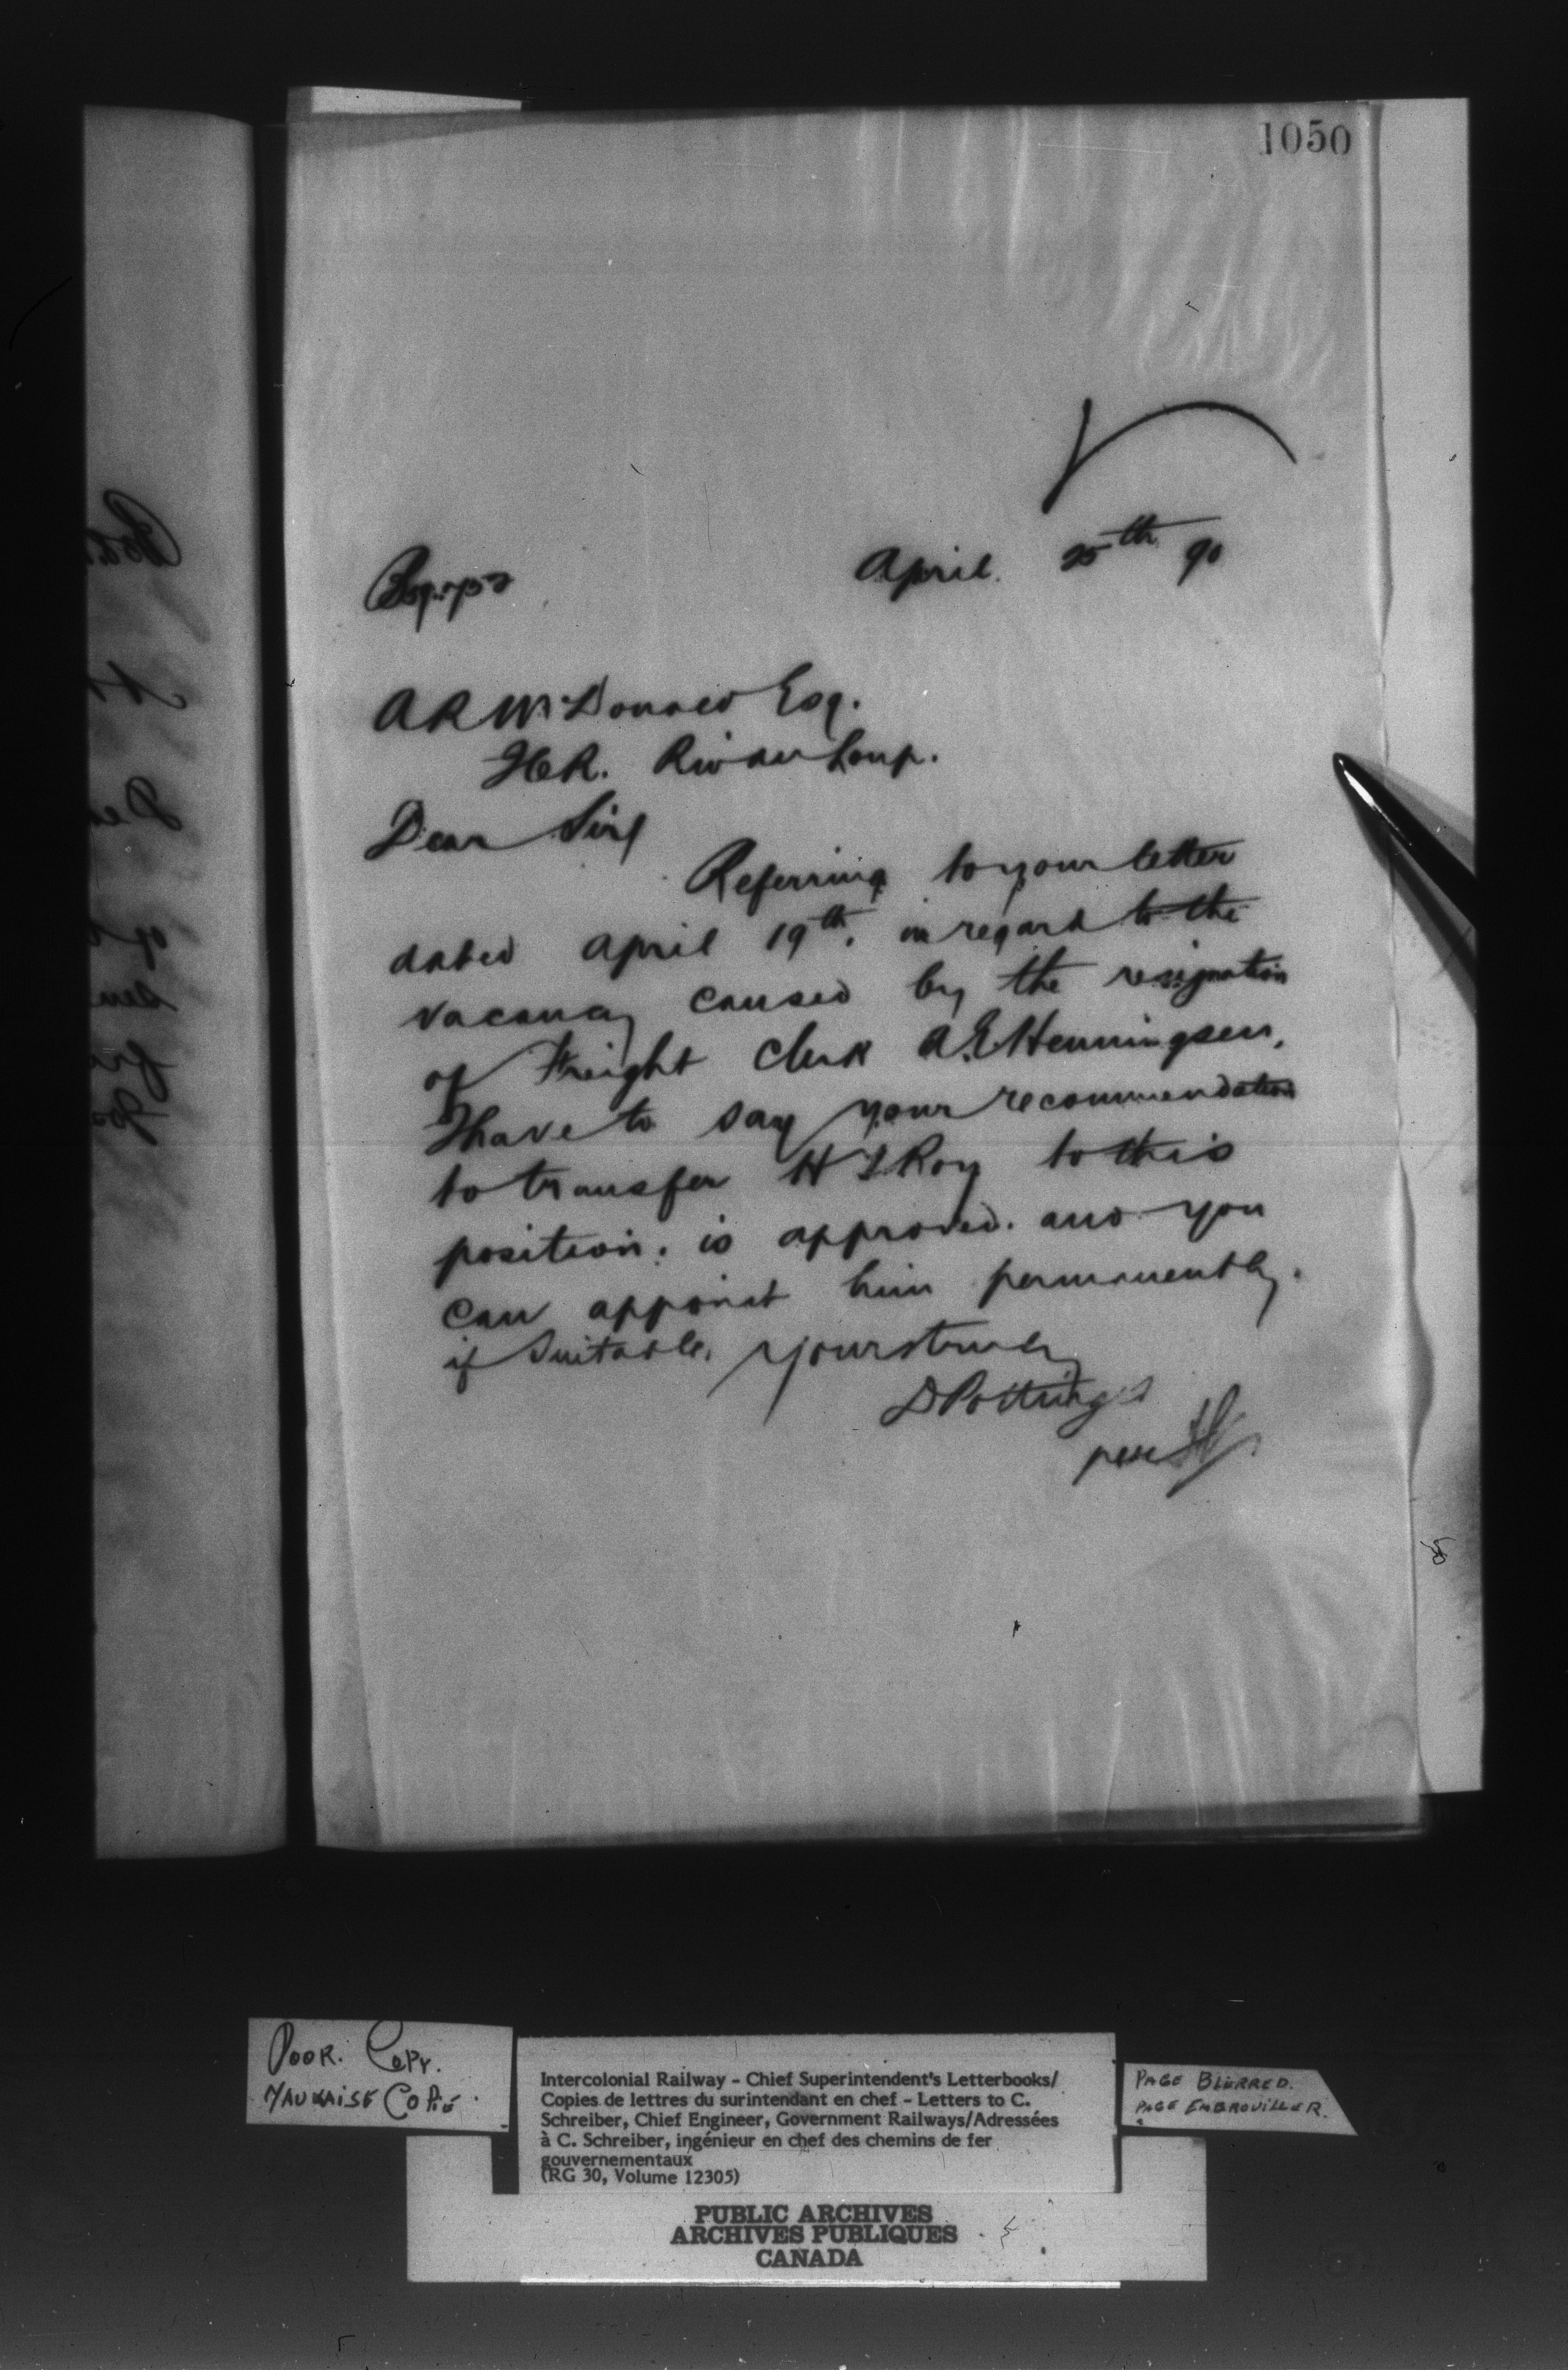 1050
April 25th 90
A R McDonald Esq.
ICR. Riv du Loup.
Dear Sir/
Referring to your letter
dated April 19th, in regard to the
vacancy caused by the resignation
of Freight Clerk A. E Henningsen,
I have to say your recommendation
to transfer H Roy to this
position. is approved. and you
can appoint him permanently.
if Suitable. Yours truly
D Pottinger
per
POOR. COPY.
MAUVAISE COPIE.
Intercolonial Railway - Chief Superintendent's Letterbooks/
Copies de lettres du surintendant en chef - Letters to C.
Schreiber, Chief Engineer, Government Railways/Adressées
à C. Schreiber, ingénieur en chef des chemins de fer
gouvernementaux
(RG 30, Volume 12305)
PAGE BLURRED.
PAGE EMBROUILLER.
PUBLIC ARCHIVES
ARCHIVES PUBLIQUES
CANADA